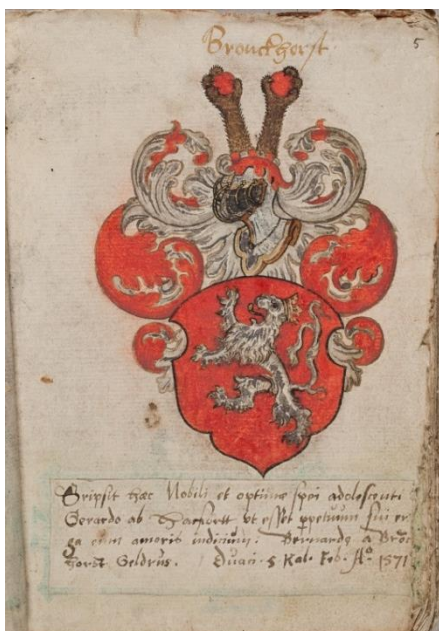 Bronckhorst
5
Scripsit hæc Nobili et optimæ spei adolescenti
Gerardo ab Hackfortt ut esset ppetuum sui er
ga eum amoris indicium. Bernardq a Bröc
horst Geldrus. Duaci. 5 Kal. Feb. Aº 1571